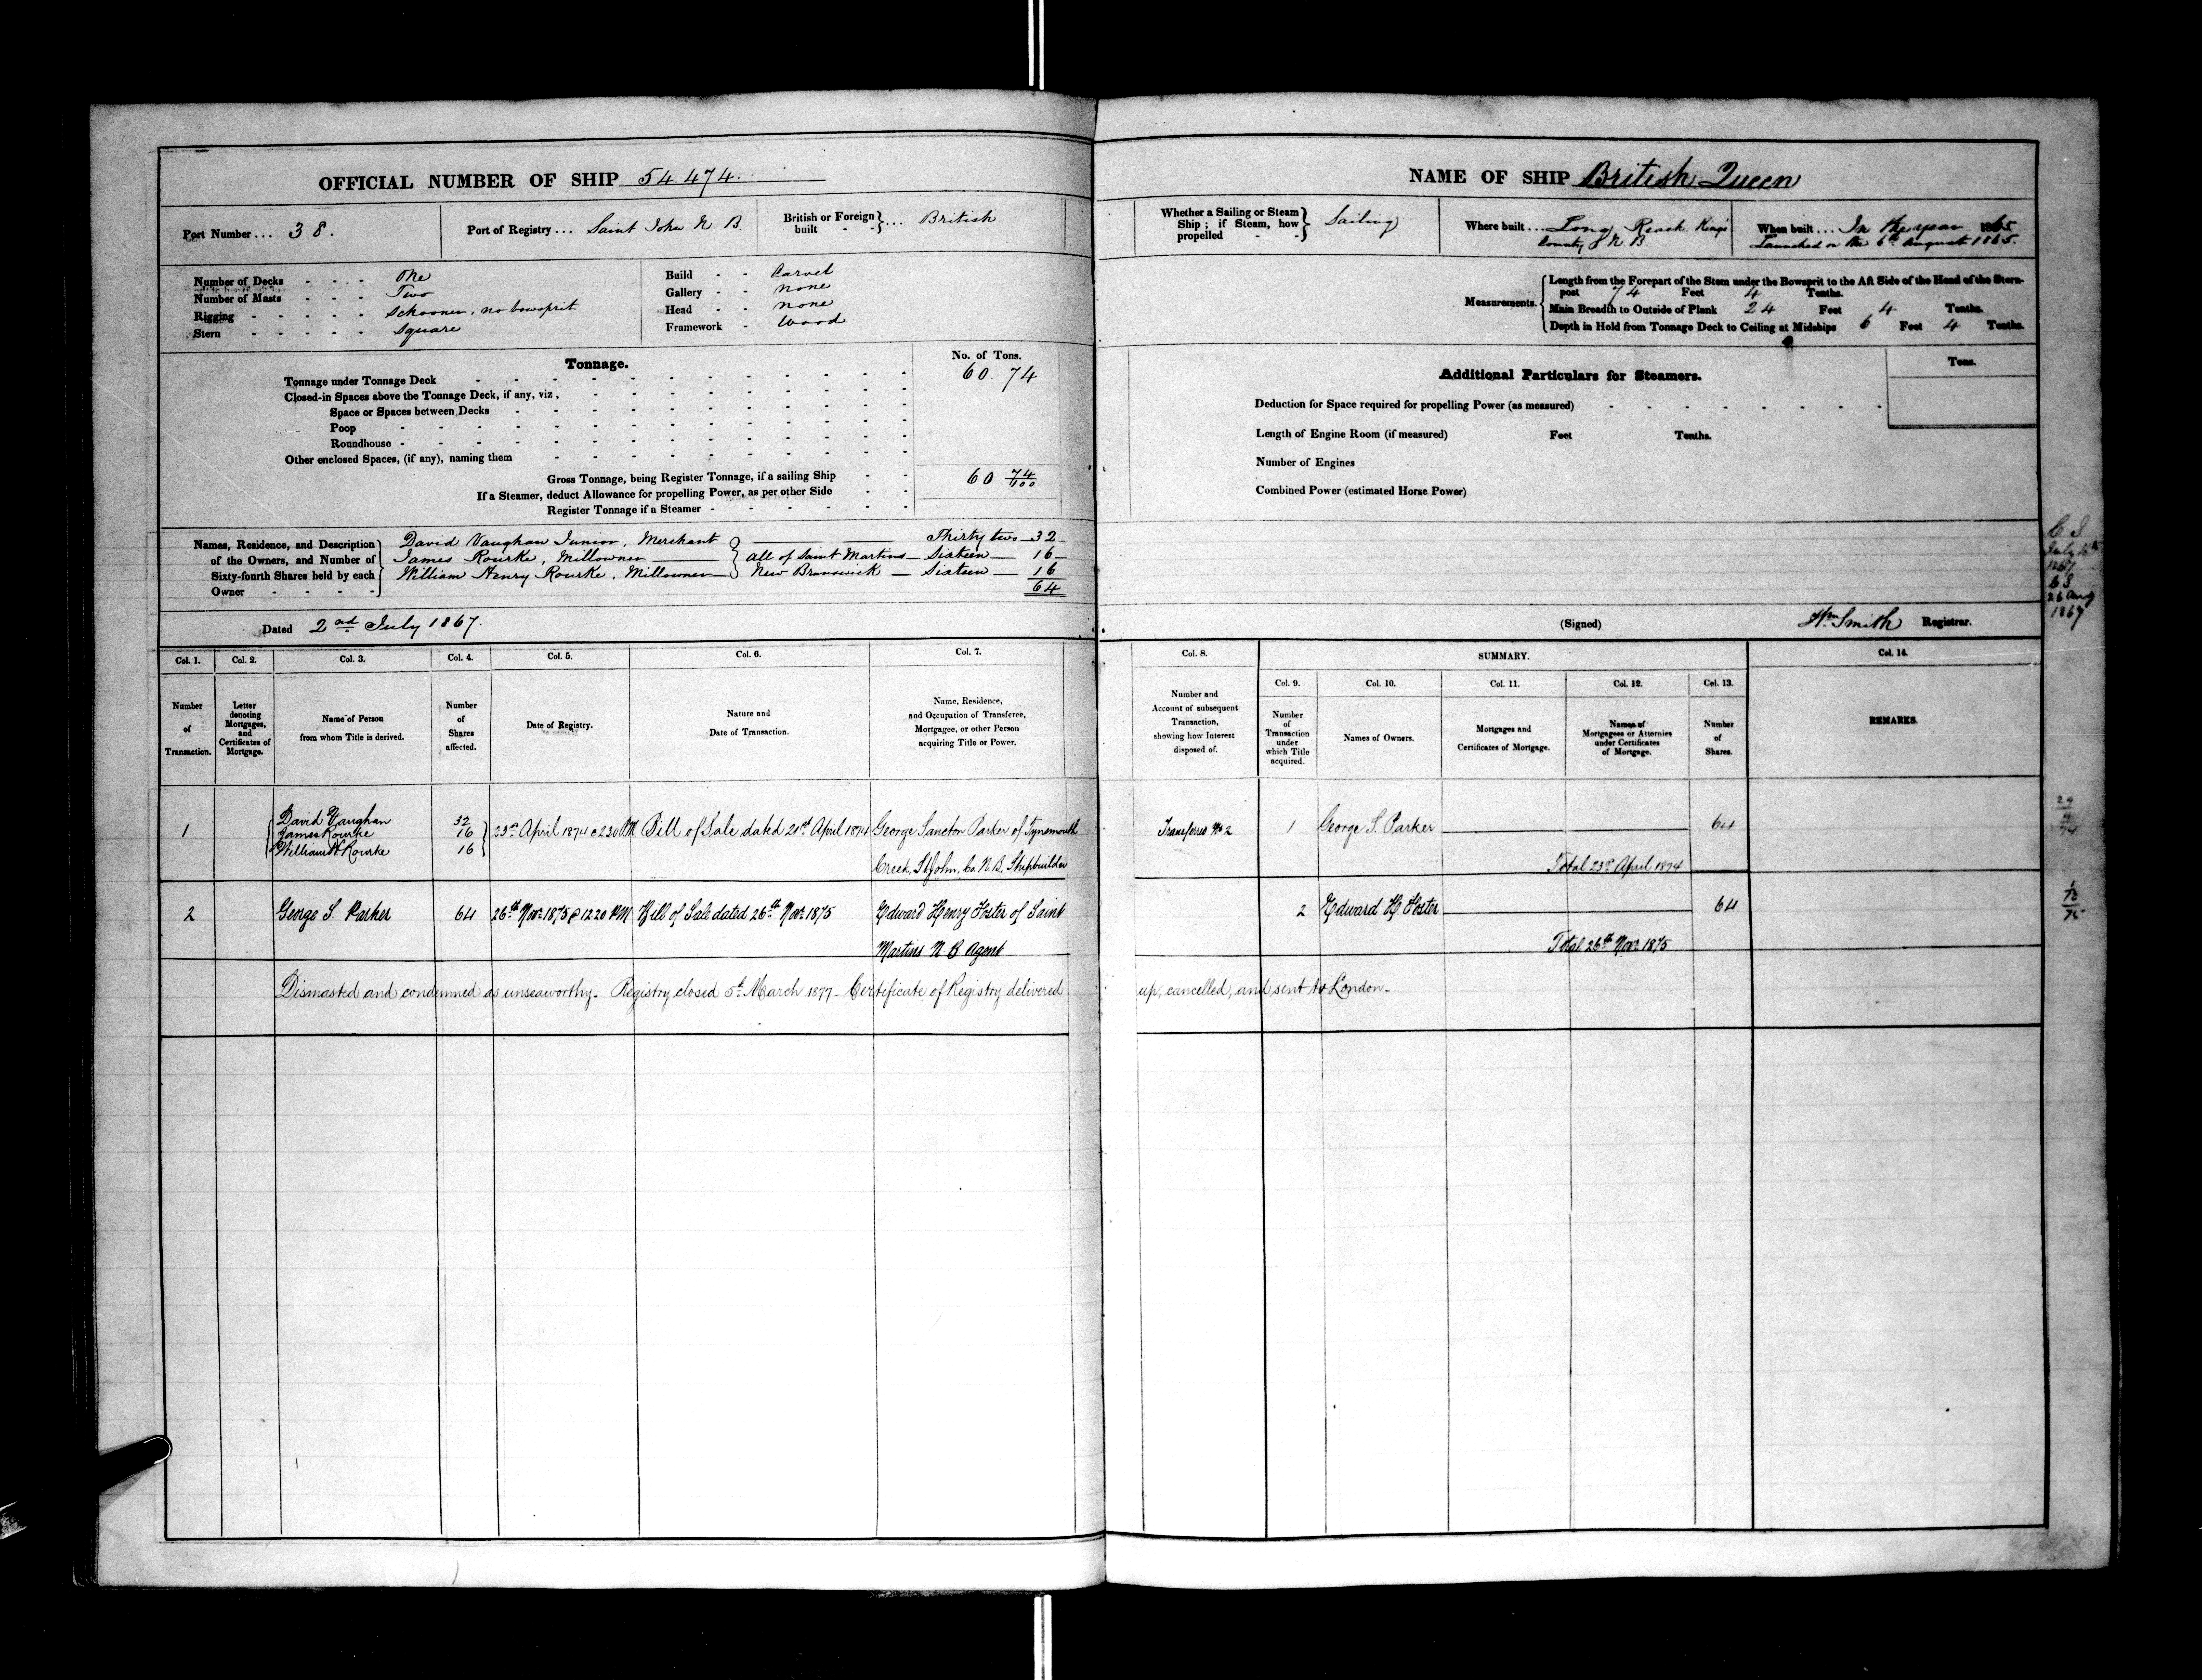 OFFICIAL NUMBER OF SHIP 54.474.
Port Number... 38.
Port of Registry... Saint John N. B.
British or Foreign built - - } ... British
Number of Decks - - - - One
Number of Masts - - - - Two
Rigging - - - - - Schooner, no bowsprit
Stern - - - - - Square
Build - - Carvel
Gallery - - none
Head - - none
Framework - Wood
Tonnage.
No. of Tons.
Tonnage under Tonnage Deck 60. 74
Closed-in Spaces above the Tonnage Deck, if any, viz,
Space or Spaces between Decks
Poop
Roundhouse
Other enclosed Spaces, (if any), naming them
Gross Tonnage, being Register Tonnage, if a sailing Ship 60 74/100
If a Steamer, deduct Allowance for propelling Power, as per other Side
Register Tonnage if a Steamer
Names, Residence, and Description
of the Owners, and Number of
Sixty-fourth Shares held by each
Owner
David Vaughan Junior, Merchant Thirty two 32
James Rourke, Millowner } all of Saint Martins Sixteen 16
William Henry Rourke, Millowner } New Brunswick Sixteen 16
64
Dated 2nd July 1867.
Col. 1. Col. 2. Col. 3. Col. 4. Col. 5. Col. 6. Col. 7.
Number of Transaction.
Letter denoting Mortgages, and Certificates of Mortgage.
Name of Person from whom Title is derived.
Number of Shares affected.
Date of Registry.
Nature and Date of Transaction.
Name, Residence, and Occupation of Transferee, Mortgagee, or other Person acquiring Title or Power.
1
David Vaughan 32
James Rourke 16
William H Rourke 16
23rd April 1874 @ 2.30 PM
Bill of Sale dated 21st April 1874
George Sancton Parker of Tynemouth
Creek, St John, Co. N.B. Shipbuilder
2
George S. Parker 64
26th Novr 1875 @ 12 20 PM
Bill of Sale dated 26th Novr 1875
Edward Henry Foster of Saint
Martins N B Agent
Dismasted and condemned as unseaworthy- Registry closed 5th March 1877- Certificate of Registry delivered
NAME OF SHIP British Queen
Whether a Sailing or Steam Ship; if Steam, how propelled - - } Sailing
Where built ... Long Reach. Kings
County N B
When built.... In the year 1865
Launched on the 6th August 1865.
Measurements.
Length from the Forepart of the Stem under the Bowsprit to the Aft Side of the Head of the Stern-
post 74 Feet 4 Tenths.
Main Breadth to Outside of Plank 24 Feet 4 Tenths.
Depth in Hold from Tonnage Deck to Ceiling at Midships 6 Feet 4 Tenths.
Additional Particulars for Steamers.
Tons.
Deduction for Space required for propelling Power (as measured)
Length of Engine Room (if measured) Feet Tenths.
Number of Engines
Combined Power (estimated Horse Power)
26 Aug
1867
(Signed) Wm Smith Registrar.
Col. 8. SUMMARY. Col. 14.
Col. 9. Col. 10. Col. 11. Col. 12. Col. 13.
Number and Account of subsequent Transaction, showing how Interest disposed of.
Number of Transaction under which Title acquired.
Names of Owners.
Mortgages and Certificates of Mortgage.
Names of Mortgagees or Attornies under Certificates of Mortgage.
Number of Shares.
REMARKS.
Transferred No 2
1 George S. Parker 64
Total 23rd April 1874
2 Edward H. Foster 64
Total 26th Novr 1875
up, cancelled, and sent to London-